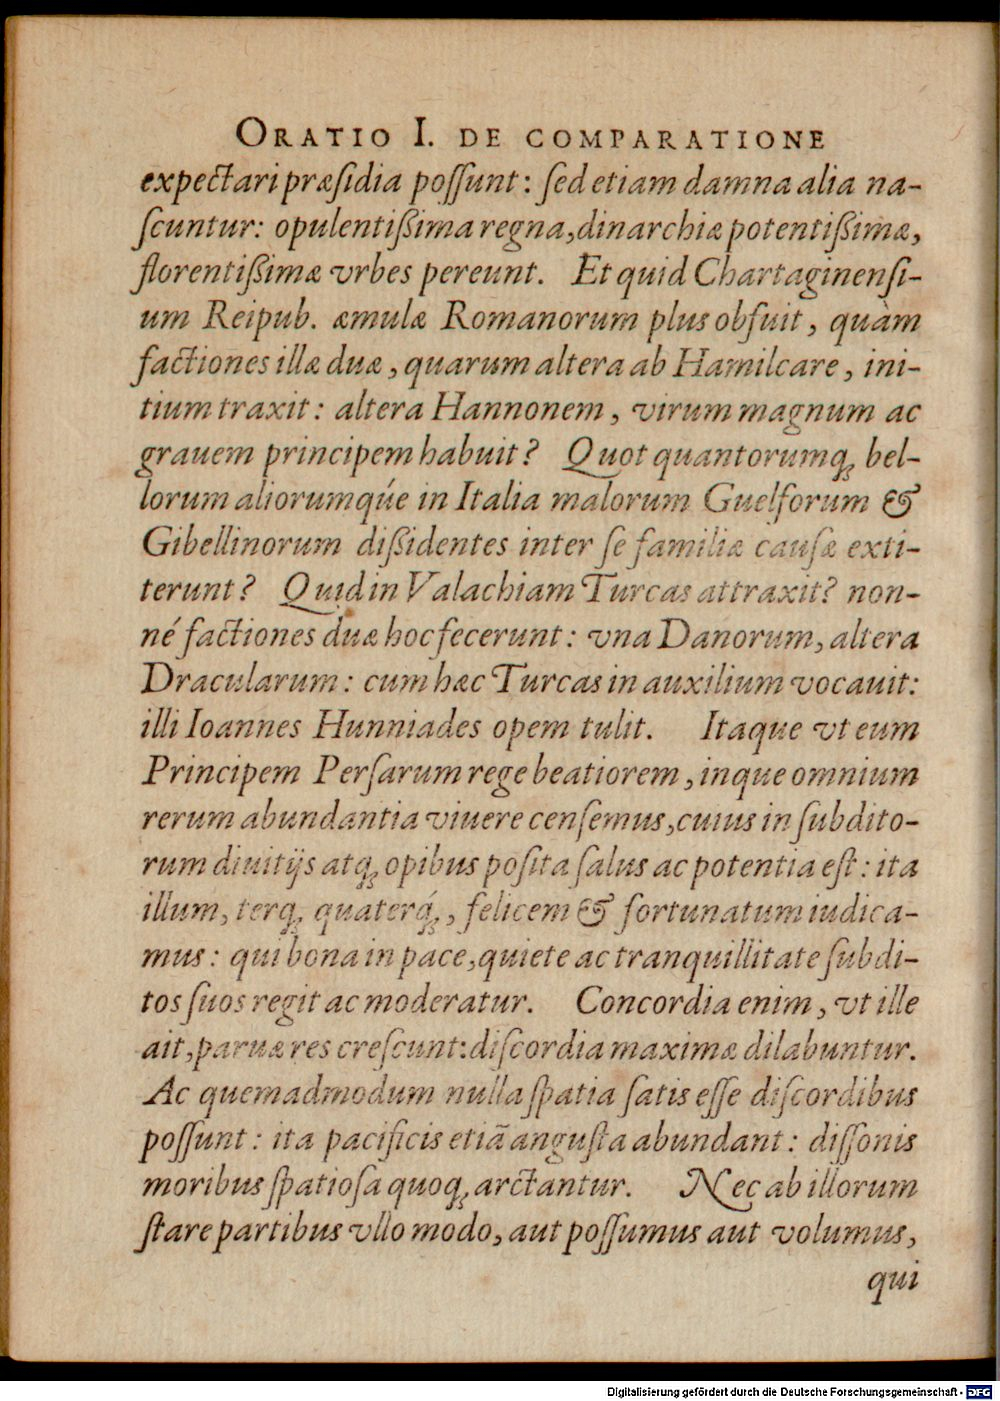 ORATIO I. DE COMPARATIONE
expectari præsidia possunt: sed etiam damna alia na-
scuntur: opulentißima regna, dinarchiæ potentißimæ,
florentißimæ vrbes pereunt. Et quid Chartaginensi-
um Reipub. æmulæ Romanorum plus obfuit, quàm
factiones illæ duæ, quarum altera ab Hamilcare, ini-
tium traxit: altera Hannonem, virum magnum ac
grauem principem habuit? Quot quantorumq; bel-
lorum aliorumqúe in Italia malorum Guelforum &
Gibellinorum dißidentes inter se familiæ causæ exti-
terunt? Quid in Valachiam Turcas attraxit? non-
né factiones duæ hoc fecerunt: vna Danorum, altera
Dracularum: cum hæc Turcas in auxilium vocauit:
illi Ioannes Hunniades opem tulit. Itaque vt eum
Principem Persarum rege beatiorem, inque omnium
rerum abundantia viuere censemus, cuius in subdito-
rum diuitijs atq; opibus posita salus ac potentia est: ita
illum, terq; quaterq́;, felicem & fortunatum iudica-
mus: qui bona in pace, quiete ac tranquillitate subdi-
tos suos regit ac moderatur. Concordia enim, vt ille
ait, paruæ res crescunt: discordia maximæ dilabuntur.
Ac quemadmodum nulla spatia satis esse discordibus
possunt: ita pacificis etiã angusta abundant: dissonis
moribus spatiosa quoq; arctantur. Nec ab illorum
stare partibus vllo modo, aut possumus aut volumus,
qui
Digitalisierung gefördert durch die Deutsche Forschungsgemeinschaft - DFG